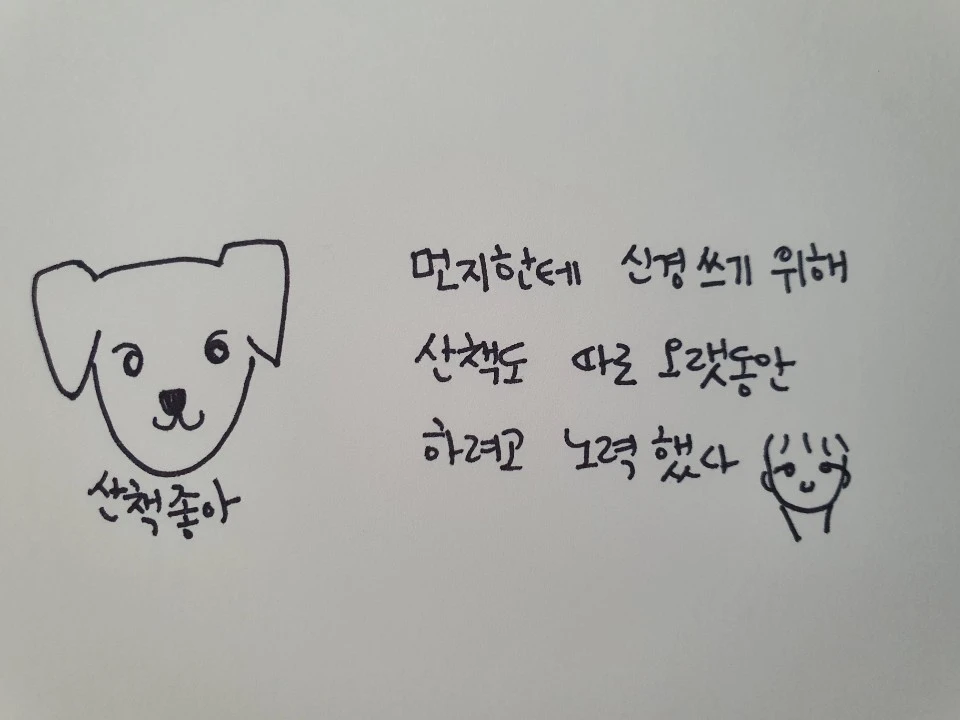 산책좋아
먼지한테 신경쓰기 위해
산책도 따로 오랫동안
하려고 노력했다